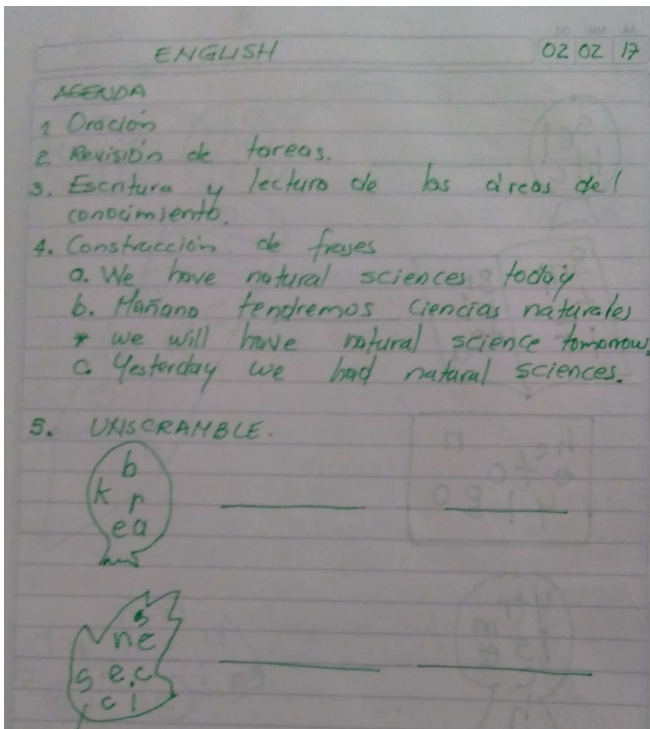 DD MM AA
ENGLISH 02 02 17
AGENDA
1. Oración
2. Revisión de tareas.
3. Escritura y lectura de las áreas del
conocimiento.
4. Construcción de frases
a. We have natural sciences today
b. Mañana tendremos ciencias naturales
* we will have natural science tomorrow.
c. Yesterday we had natural sciences.
5. UNSCRAMBLE.
b
k r
ea
s
ne
s e.c
c i